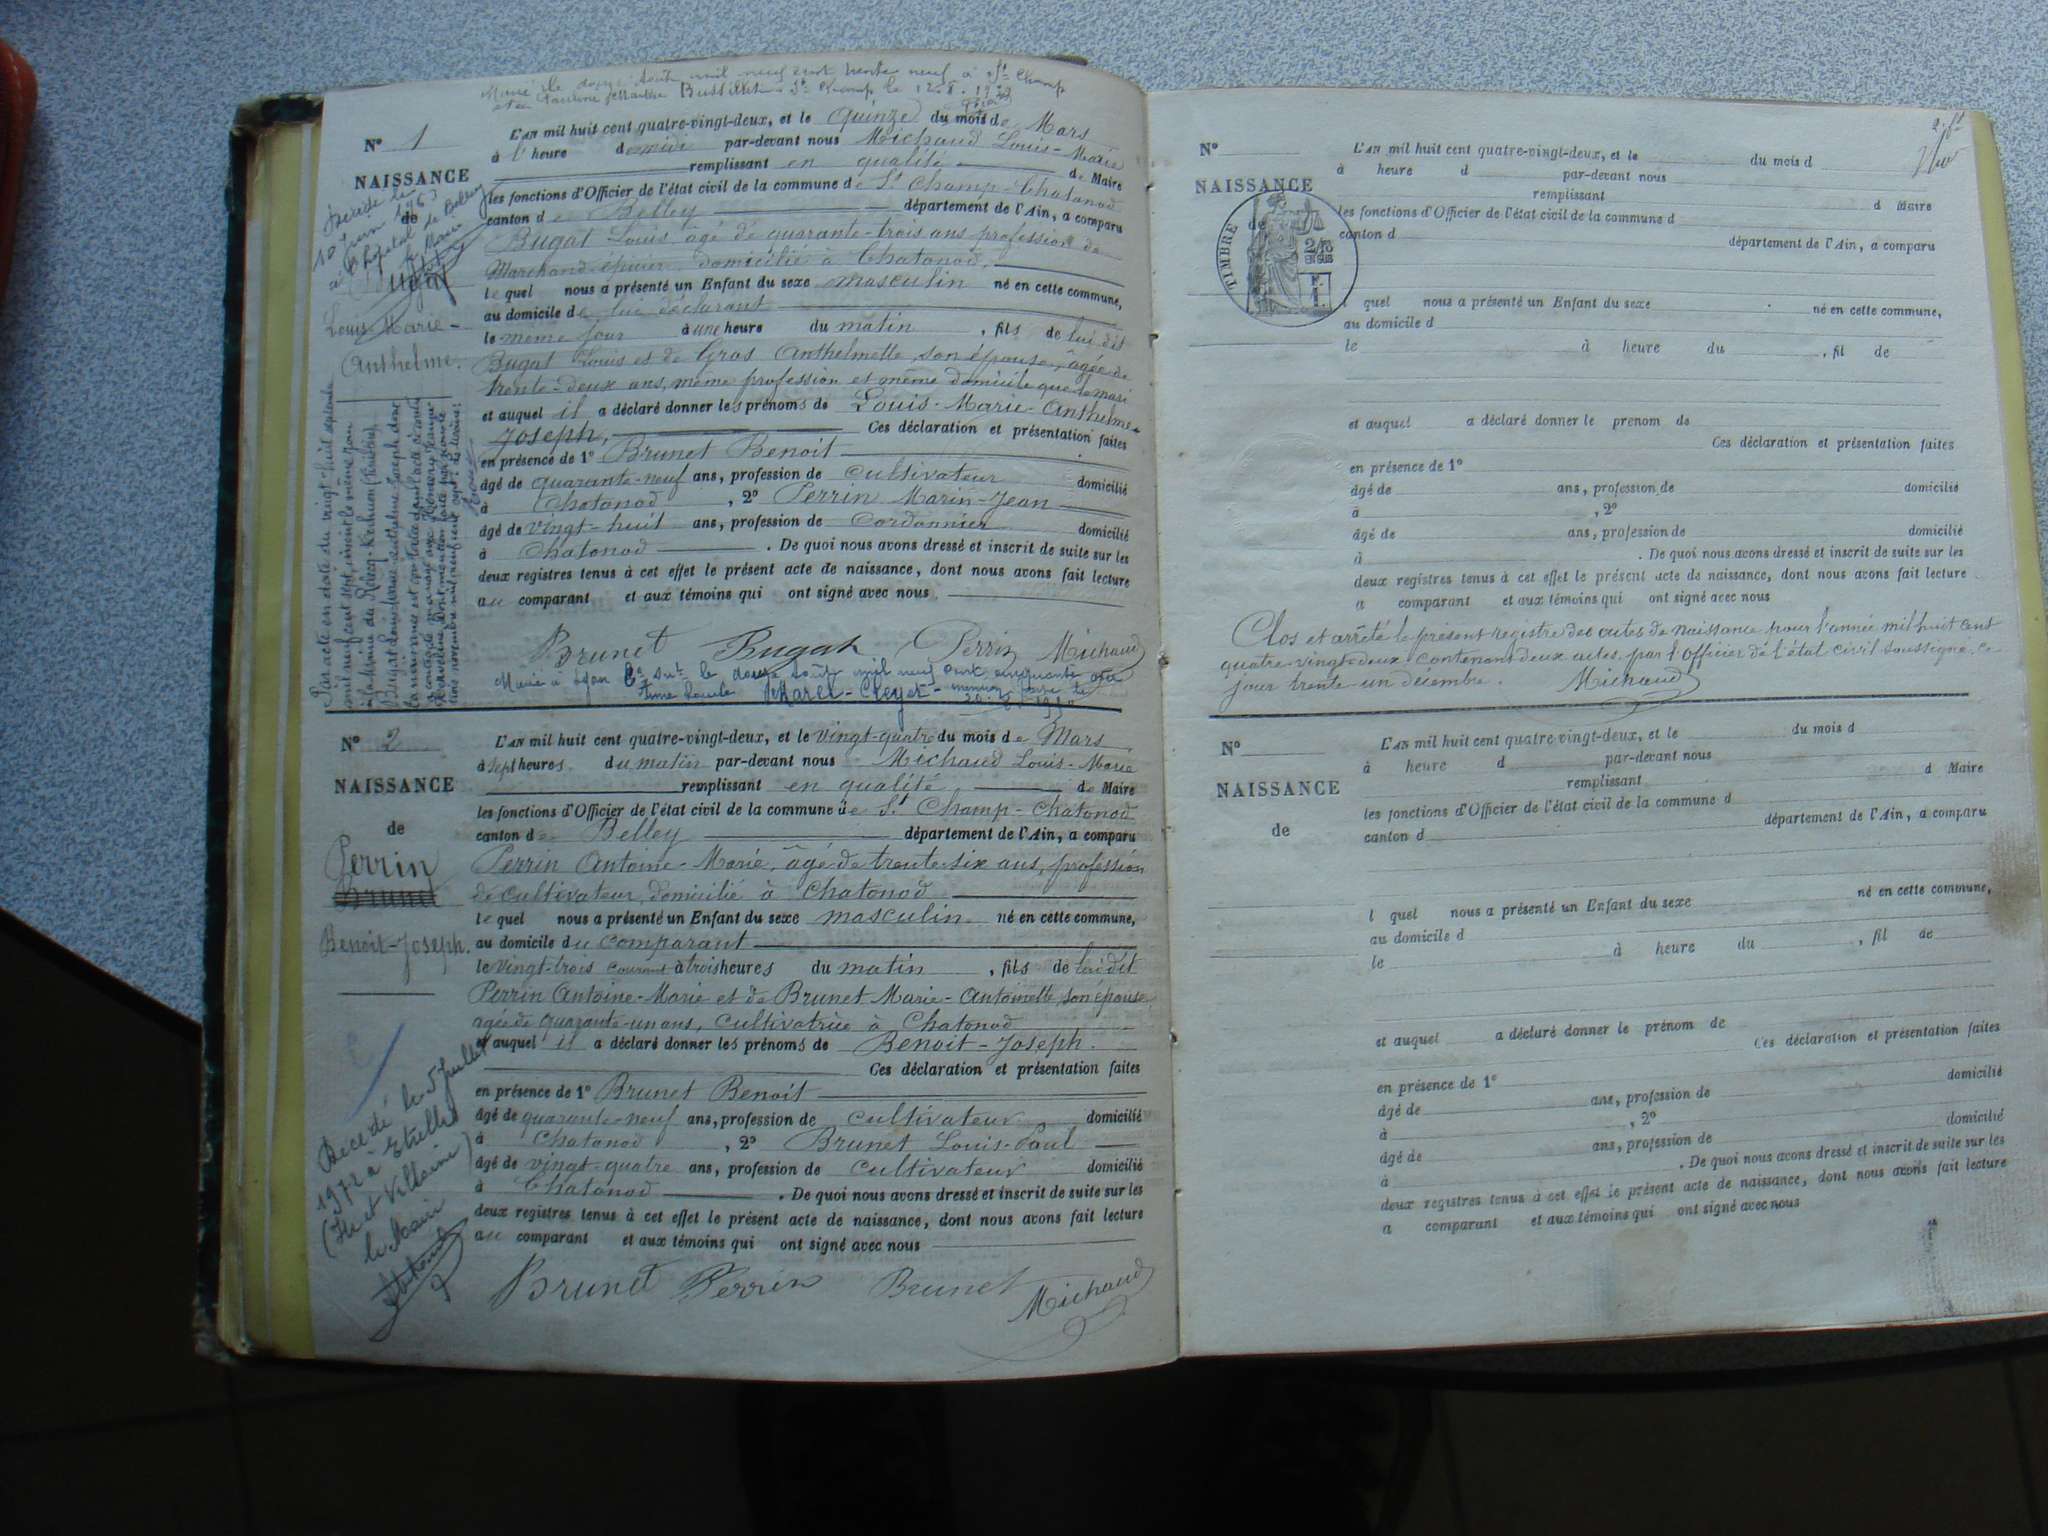 Marié le douze août mil neuf cent trente neuf à St Champ
et à Pauline Bussillet St Champ le 12.8.1939
N° 1
NAISSANCE
de
Bugat
Louis-Marie-
Anthelme.
Décédé le
10 juin 196
à l'hôpital de Belley
le Maire
L'AN mil huit cent quatre-vingt-deux, et le quinze du mois de Mars
à l'heure de midi par-devant nous Michaud Louis-Marie
remplissant en qualité de Maire
les fonctions d'Officier de l'état civil de la commune de St Champ-Chatonod
canton de Belley département de l'Ain, a comparu
Bugat Louis, âgé de quarante-trois ans profession de
Marchand épicier, domicilié à Chatonod,
lequel nous a présenté un Enfant du sexe masculin né en cette commune,
au domicile de lui déclarant
le même jour à une heure du matin, fils de lui dit
Bugat Louis et de Gros Anthelmette, son épouse, âgée de
trente-deux ans, même profession et même domicile que le mari
et auquel il a déclaré donner les prénoms de Louis-Marie-Anthelme-
Joseph, Ces déclaration et présentation faites
en présence de 1° Brunet Benoit
âgé de quarante-neuf ans, profession de Cultivateur domicilié
à Chatonod, 2° Perrin Marin-Jean
âgé de vingt-huit ans, profession de Cordonnier domicilié
à Chatonod. De quoi nous avons dressé et inscrit de suite sur les
deux registres tenus à cet effet le présent acte de naissance, dont nous avons fait lecture
au comparant et aux témoins qui ont signé avec nous.
Brunet Bugat Perrin Michaud
Marié à Lyon le douze août mil neuf cent cinquante
Marel-Creyet
Par acte en date du vingt-huit septembre
mil neuf cent sept, inscrit le même jour
à la Mairie du Relecq-Kerhuon (Finistère),
Bugat Louis-Marie-Anthelme-Joseph dont
la naissance est constatée dans l'acte ci-contre
a contracté mariage avec
dont mention faite par nous le
trois novembre mil neuf cent sept
N° 2
NAISSANCE
de
Perrin
Brunet
Benoit-Joseph.
L'AN mil huit cent quatre-vingt-deux, et le vingt-quatre du mois de Mars
à sept heures du matin par-devant nous Michaud Louis-Marie
remplissant en qualité de Maire
les fonctions d'Officier de l'état civil de la commune de St Champ-Chatonod
canton de Belley département de l'Ain, a comparu
Perrin Antoine-Marie, âgé de trente-six ans, profession
de cultivateur, domicilié à Chatonod
lequel nous a présenté un Enfant du sexe masculin né en cette commune,
au domicile du comparant
le vingt-trois courant à trois heures du matin, fils de lui dit
Perrin Antoine-Marie et de Brunet Marie-Antoinette, son épouse,
agée de quarante-un ans, cultivatrice à Chatonod
et auquel il a déclaré donner les prénoms de Benoit-Joseph.
Ces déclaration et présentation faites
en présence de 1° Brunet Benoit
âgé de quarante-neuf ans, profession de cultivateur domicilié
à Chatonod, 2° Brunet Louis-Paul
âgé de vingt-quatre ans, profession de cultivateur domicilié
à Chatonod. De quoi nous avons dressé et inscrit de suite sur les
deux registres tenus à cet effet le présent acte de naissance, dont nous avons fait lecture
au comparant et aux témoins qui ont signé avec nous
Brunet Perrin Brunet Michaud
Décédé le 5 Juillet
1972 à Etrelles
(Ille et Villaine)
le Maire
N°
NAISSANCE
de
TIMBRE
2/10
EN SUS
L'AN mil huit cent quatre-vingt-deux, et le du mois d
à heure d par-devant nous
remplissant d Maire
les fonctions d'Officier de l'état civil de la commune d
canton d département de l'Ain, a comparu
l quel nous a présenté un Enfant du sexe né en cette commune,
au domicile d
le à heure du , fil de
et auquel a déclaré donner le prenom de
Ces déclaration et présentation faites
en présence de 1°
âgé de ans, profession de domicilié
à , 2°
âgé de ans, profession de domicilié
à . De quoi nous avons dressé et inscrit de suite sur les
deux registres tenus à cet effet le présent acte de naissance, dont nous avons fait lecture
a comparant et aux témoins qui ont signé avec nous
Clos et arrêté le présent registre des actes de Naissance pour l'année mil huit cent
quatre-vingt-deux contenant deux actes, par l'officier de l'état civil soussigné, ce
jour trente un décembre. Michaud
N°
NAISSANCE
de
L'AN mil huit cent quatre-vingt-deux, et le du mois d
à heure d par-devant nous
remplissant d Maire
les fonctions d'Officier de l'état civil de la commune d
canton d département de l'Ain, a comparu
l quel nous a présenté un Enfant du sexe né en cette commune,
au domicile d
le à heure du , fil de
et auquel a déclaré donner le prénom de
Ces déclaration et présentation faites
en présence de 1°
âgé de ans, profession de domicilié
à , 2°
âgé de ans, profession de domicilié
à . De quoi nous avons dressé et inscrit de suite sur les
deux registres tenus à cet effet le présent acte de naissance, dont nous avons fait lecture
a comparant et aux témoins qui ont signé avec nous